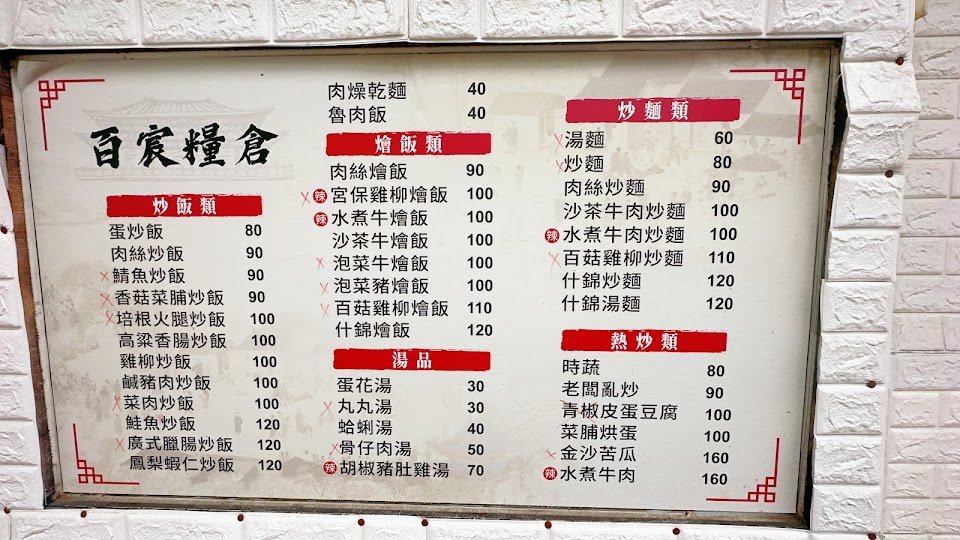 百宸糧倉
炒飯類
蛋炒飯 80
肉絲炒飯 90
鯖魚炒飯 90
香菇菜脯炒飯 90
培根火腿炒飯 100
高粱香腸炒飯 100
雞柳炒飯 100
鹹豬肉炒飯 100
菜肉炒飯 100
鮭魚炒飯 120
廣式臘腸炒飯 120
鳳梨蝦仁炒飯 120
肉燥乾麵 40
魯肉飯 40
燴飯類
肉絲燴飯 90
辣 宮保雞柳燴飯 100
辣 水煮牛燴飯 100
沙茶牛燴飯 100
泡菜牛燴飯 100
泡菜豬燴飯 100
百菇雞柳燴飯 110
什錦燴飯 120
湯品
蛋花湯 30
丸丸湯 30
蛤蜊湯 40
骨仔肉湯 50
辣 胡椒豬肚雞湯 70
炒麵類
湯麵 60
炒麵 80
肉絲炒麵 90
沙茶牛肉炒麵 100
辣 水煮牛肉炒麵 100
百菇雞柳炒麵 110
什錦炒麵 120
什錦湯麵 120
熱炒類
時蔬 80
老闆亂炒 90
青椒皮蛋豆腐 100
菜脯烘蛋 100
金沙苦瓜 160
辣 水煮牛肉 160